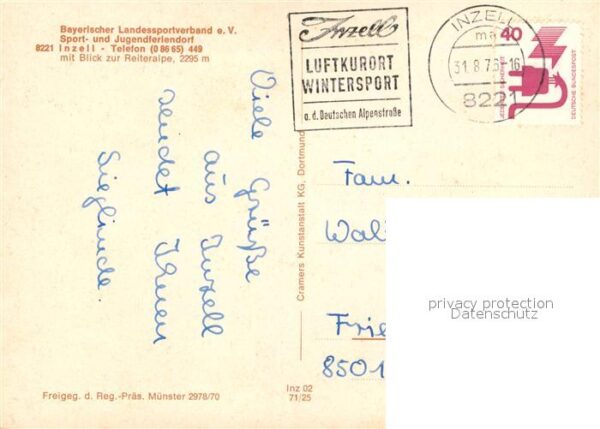 Bayerischer Landessportverband e. V.
Sport- und Jugendferiendorf
8221 Inzell - Telefon (0 86 65) 449
mit Blick zur Reiteralpe, 2295 m
Viele Grüße
aus Inzell
sendet Ihnen
Sieglinde.
Freigeg. d. Reg.-Präs. Münster 2978/70
Cramers Kunstanstalt KG, Dortmund
Inz 02
71/25
Inzell
LUFTKURORT
WINTERSPORT
a. d. Deutschen Alpenstraße
INZELL
ma
31.8.7
16
8221
40
DEUTSCHE BUNDESPOST
Fam.
Wal
Frie
8501
privacy protection
Datenschutz